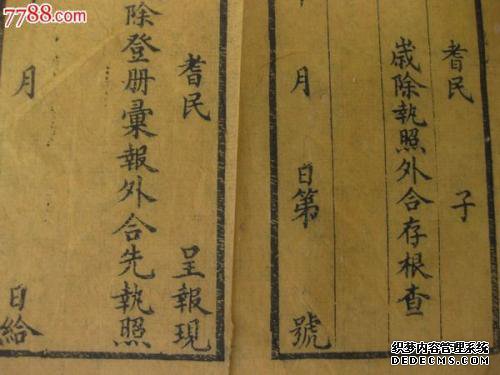 7788.com
耆民 子
歲除執照外合存根查
月 日第 號
耆民 呈報現
除登册彙報外合先執照
月 日給
织梦内容管理系统
DEDECMS.COM